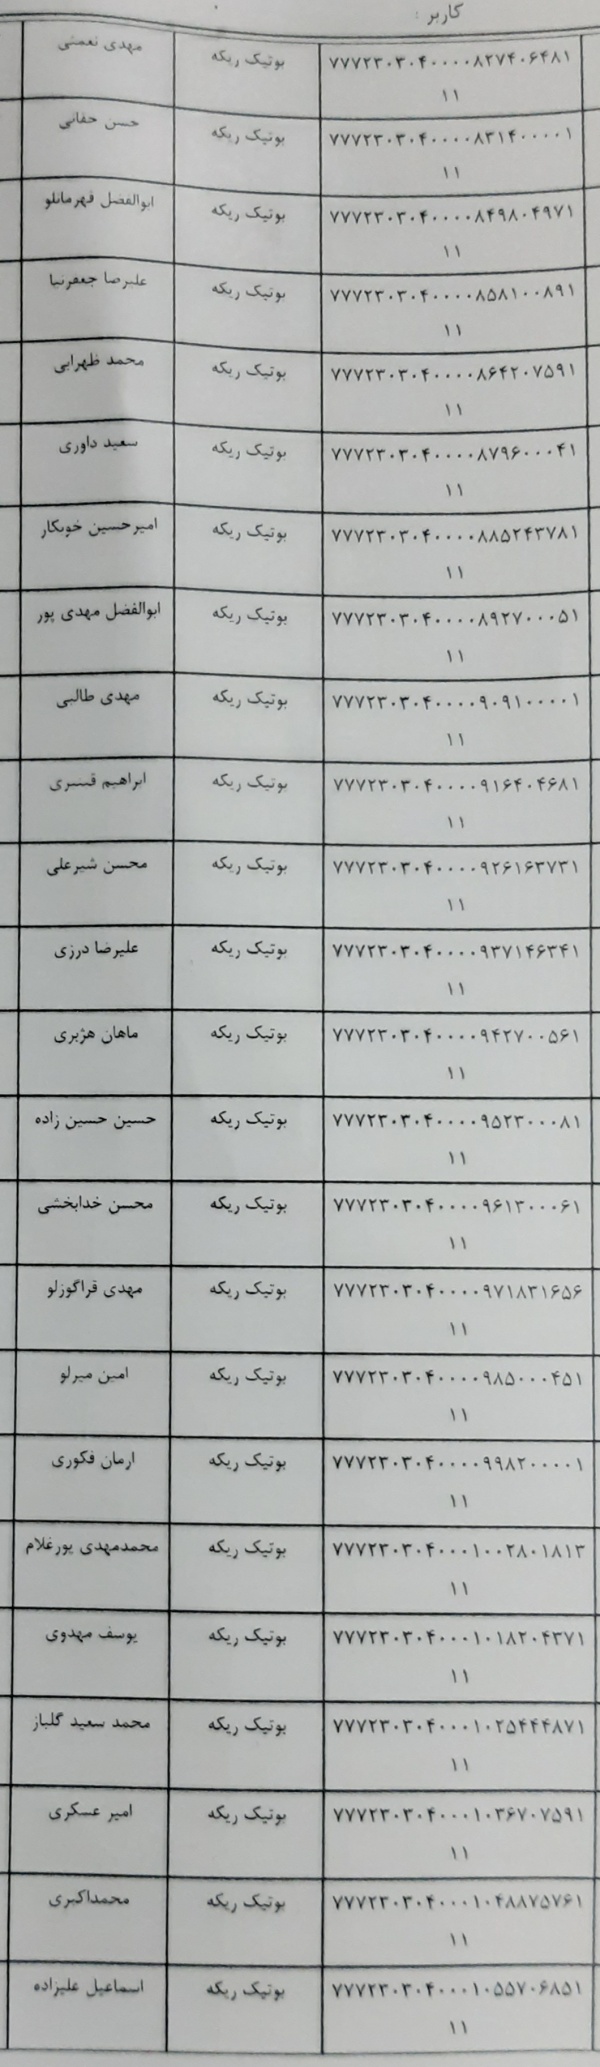 کاربر :
۷۷۷۲۳۰۳۰۴۰۰۰۰۸۲۷۴۰۶۴۸۱ بوتیک ریکه مهدی نعمتی
۱۱
۷۷۷۲۳۰۳۰۴۰۰۰۰۸۳۱۴۰۰۰۰۱ بوتیک ریکه حسن حقانی
۱۱
۷۷۷۲۳۰۳۰۴۰۰۰۰۸۴۹۸۰۴۹۷۱ بوتیک ریکه ابوالفضل قهرمانلو
۱۱
۷۷۷۲۳۰۳۰۴۰۰۰۰۸۵۸۱۰۰۸۹۱ بوتیک ریکه علیرضا جعفرنیا
۱۱
۷۷۷۲۳۰۳۰۴۰۰۰۰۸۶۴۲۰۷۵۹۱ بوتیک ریکه محمد طهرابی
۱۱
۷۷۷۲۳۰۳۰۴۰۰۰۰۸۷۹۶۰۰۰۴۱ بوتیک ریکه سعید داوری
۱۱
۷۷۷۲۳۰۳۰۴۰۰۰۰۸۸۵۲۴۳۷۸۱ بوتیک ریکه امیرحسین خوبکار
۱۱
۷۷۷۲۳۰۳۰۴۰۰۰۰۸۹۲۷۰۰۰۵۱ بوتیک ریکه ابوالفضل مهدی پور
۱۱
۷۷۷۲۳۰۳۰۴۰۰۰۰۹۰۹۱۰۰۰۰۱ بوتیک ریکه مهدی طالبی
۱۱
۷۷۷۲۳۰۳۰۴۰۰۰۰۹۱۶۴۰۴۶۸۱ بوتیک ریکه ابراهیم قیصری
۱۱
۷۷۷۲۳۰۳۰۴۰۰۰۰۹۲۶۱۶۳۷۳۱ بوتیک ریکه محسن شیرعلی
۱۱
۷۷۷۲۳۰۳۰۴۰۰۰۰۹۳۷۱۴۶۳۴۱ بوتیک ریکه علیرضا درزی
۱۱
۷۷۷۲۳۰۳۰۴۰۰۰۰۹۴۲۷۰۰۵۶۱ بوتیک ریکه ماهان هژبری
۱۱
۷۷۷۲۳۰۳۰۴۰۰۰۰۹۵۲۳۰۰۰۸۱ بوتیک ریکه حسین حسین زاده
۱۱
۷۷۷۲۳۰۳۰۴۰۰۰۰۹۶۱۳۰۰۰۶۱ بوتیک ریکه محسن خدابخشی
۱۱
۷۷۷۲۳۰۳۰۴۰۰۰۰۹۷۱۸۳۱۶۵۶ بوتیک ریکه مهدی قراگوزلو
۱۱
۷۷۷۲۳۰۳۰۴۰۰۰۰۹۸۵۰۰۰۴۵۱ بوتیک ریکه امین میرلو
۱۱
۷۷۷۲۳۰۳۰۴۰۰۰۰۹۹۸۲۰۰۰۰۱ بوتیک ریکه ارمان فکوری
۱۱
۷۷۷۲۳۰۳۰۴۰۰۰۱۰۰۲۸۰۱۸۱۳ بوتیک ریکه محمدمهدی پورغلام
۱۱
۷۷۷۲۳۰۳۰۴۰۰۰۱۰۱۸۲۰۴۳۷۱ بوتیک ریکه یوسف مهدوی
۱۱
۷۷۷۲۳۰۳۰۴۰۰۰۱۰۲۵۴۴۴۸۷۱ بوتیک ریکه محمد سعید گلباز
۱۱
۷۷۷۲۳۰۳۰۴۰۰۰۱۰۳۶۷۰۷۵۹۱ بوتیک ریکه امیر عسکری
۱۱
۷۷۷۲۳۰۳۰۴۰۰۰۱۰۴۸۸۷۵۷۶۱ بوتیک ریکه محمداکبری
۱۱
۷۷۷۲۳۰۳۰۴۰۰۰۱۰۵۵۷۰۶۸۵۱ بوتیک ریکه اسماعیل علیزاده
۱۱